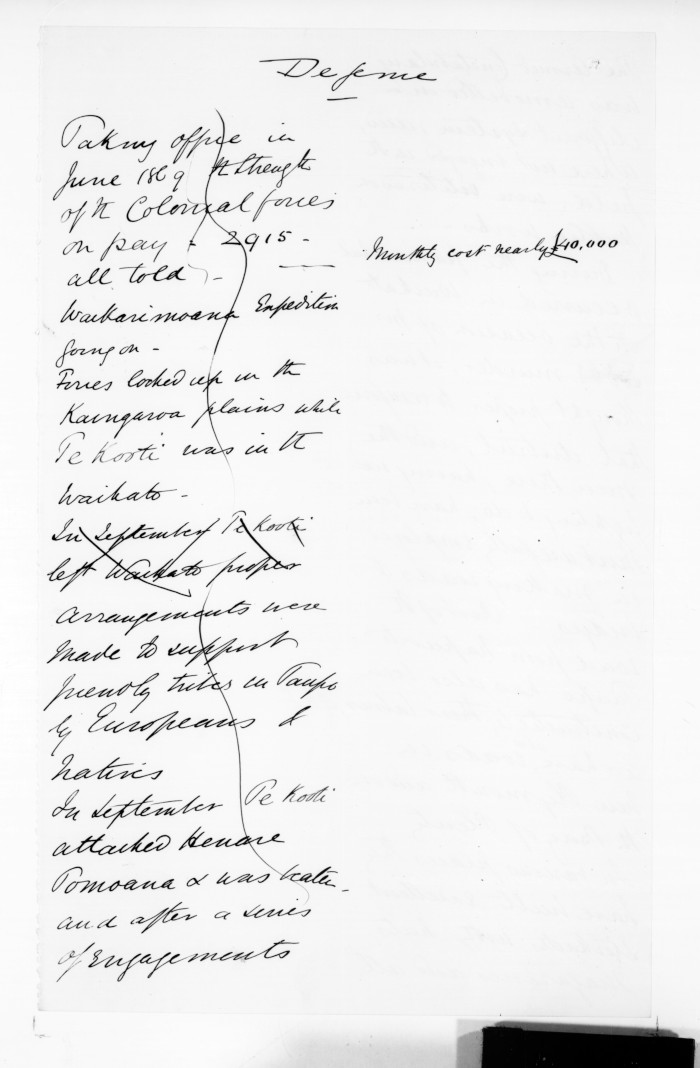 Defence
Taking office in
June 1869 the strength
of the Colonial forces
on pay - 2915 -
Monthly cost nearly £40,000
all told -
Waikarimoana Expedition
going on -
Forces locked up in the
Kaingaroa plains while
Te Kooti was in the
Waikato -
In September Te Kooti
left Waikato proper
arrangements were
made to support
friendly tribes in Taupo
by Europeans &
Natives
In September Te Kooti
attacked Henare
Tomoana & was beaten -
and after a series
of Engagements